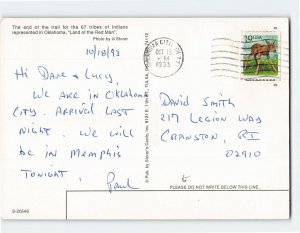 The end of the trail for the 67 tribes of Indians
represented in Oklahoma, "Land of the Red Man".
Photo by © Storer
10/18/93
Hi Dave & Lucy,
We are in Oklahoma
City. Arrival last
night. We will
be in Memphis
tonight.
Paul
S-20548
OCT 18
PM
1993
19 USA
David Smith
217 Legion Way
Cranston, RI
02910
PLEASE DO NOT WRITE BELOW THIS LINE.